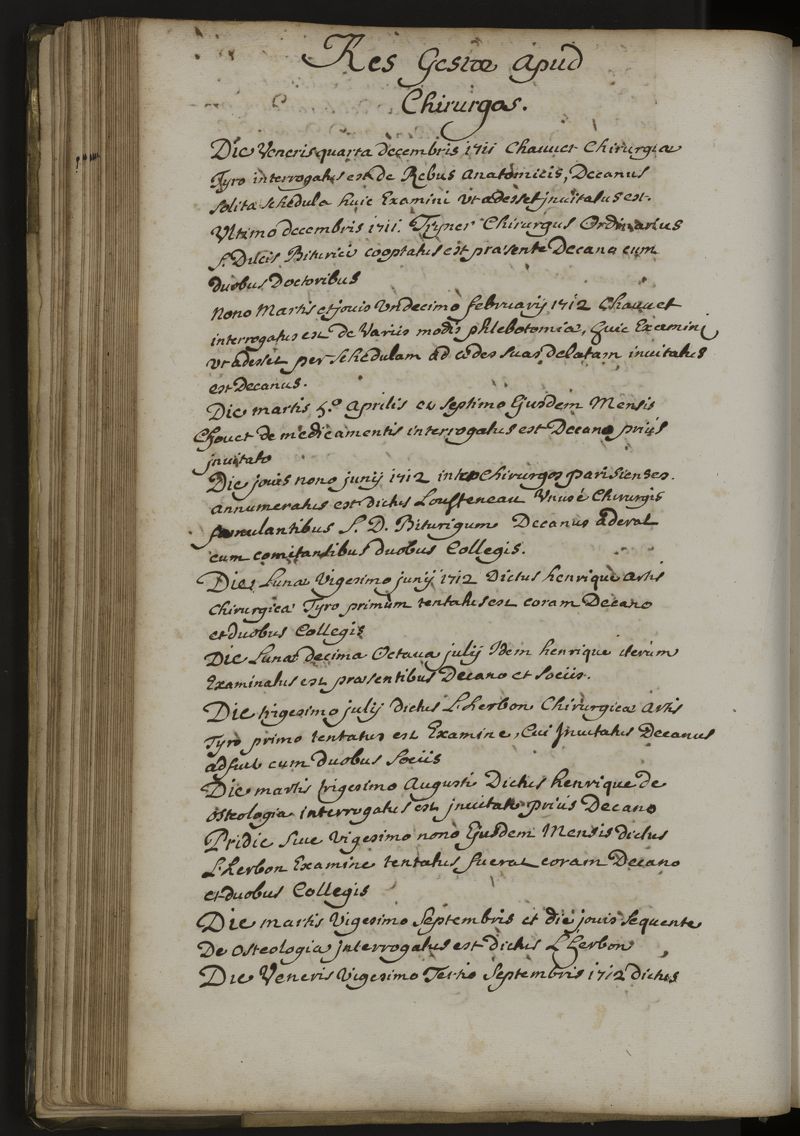 Res Gestæ apud
Chirurgos.
Die Veneris quarta decembris 1711 Chauuet Chirurgiæ
Tyro interrogatus est de Rebus Anatomicis, Decanus
solita schedula huic Examini ut adesset jnuitatus est.
Ultimo decembris 1711. Chirurgus Ordinarius
S. Bituricis cooptatus est præsente Decano cum
duobus Doctoribus
Nono Martis et jouis Undecimo februarij 1712 Chauuet
interrogatus est de Variis modis phlebotomiæ, huic Examini
ut adesset per schedulam ad ædes suas delatam inuitatus
est Decanus.
Die martis 5.º Aprilis et septimo Ejusdem Mensis
Chouet de medicamentis interrogatus est Decano priùs
jnuitato
Die jouis nono junij 1712 inter Chirurgos parisienses.
annumeratus est dictus Lousteneau Unus è Chirurgis
famulantibus S. D. Biturigum Decanus aderat
cum comitantibus duobus Collegis.
Die Lunæ Vigesimo junij 1712 Dictus henrique Artis
Chirurgicæ Tyro primùm tentatus est coram Decano
et duobus Collegis
Die Lunæ decima Octaua julij Idem henrique iterùm
Examinatus est præsentibus Decano et sociis.
Die trigesimo julij dictus L'herbon Chirurgicæ Artis
Tyro primo tentatus est Examine, Cui Jnuitatus Decanus
adfuit cum duobus Sociis
Die martis trigesimo Augusti Dictus henrique de
osteologia interrogatus est jnuitato priùs Decano
Pridie siue Vigesimo nono Ejusdem Mensis dictus
L'herbon Examine tentatus fuerat coram Decano
et duobus Collegis
Die martis Vigesimo Septembris et die jouis sequente
De Osteologia jnterrogatus est dictus L'herbon
Die Veneris Vigesimo Tertio Septembris 1712 dictus